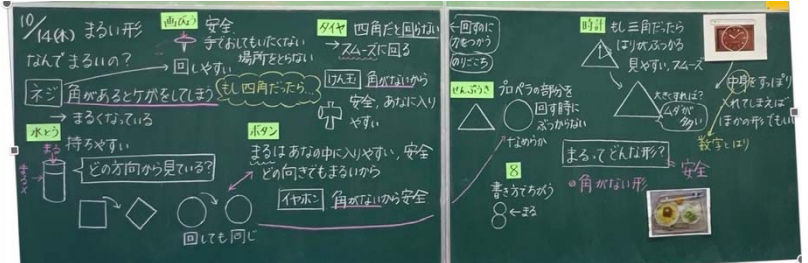 10/14(木) まるい形
なんでまるいの?
画びょう
安全
手でおしてもいたくない
場所をとらない
回しやすい
ネジ
角があるとケガをしてしまう
→ まるくなっている
もし四角だったら…
水とう
持ちやすい
まる
まる
どの方向から見ている?
回しても同じ
ボタン
まるはあなの中に入りやすい, 安全
どの向きでもまるいから
イヤホン
角がないから安全
タイヤ
四角だと回らない
→スムーズに回る
けん玉
角がないから
安全, あなに入り
やすい
←回すのに
力をつかう
のりごこち
せんぷうき
プロペラの部分を
回す時に
ぶつからない
なめらか
8
書き方でちがう
←まる
時計
もし三角だったら
はりがぶつかる
見やすい, スムーズ
大きくすれば?
ムダが
多い
中身をすっぽり
入れてしまえば
ほかの形でもいい
数字とはり
まるってどんな形?
安全
角がない形